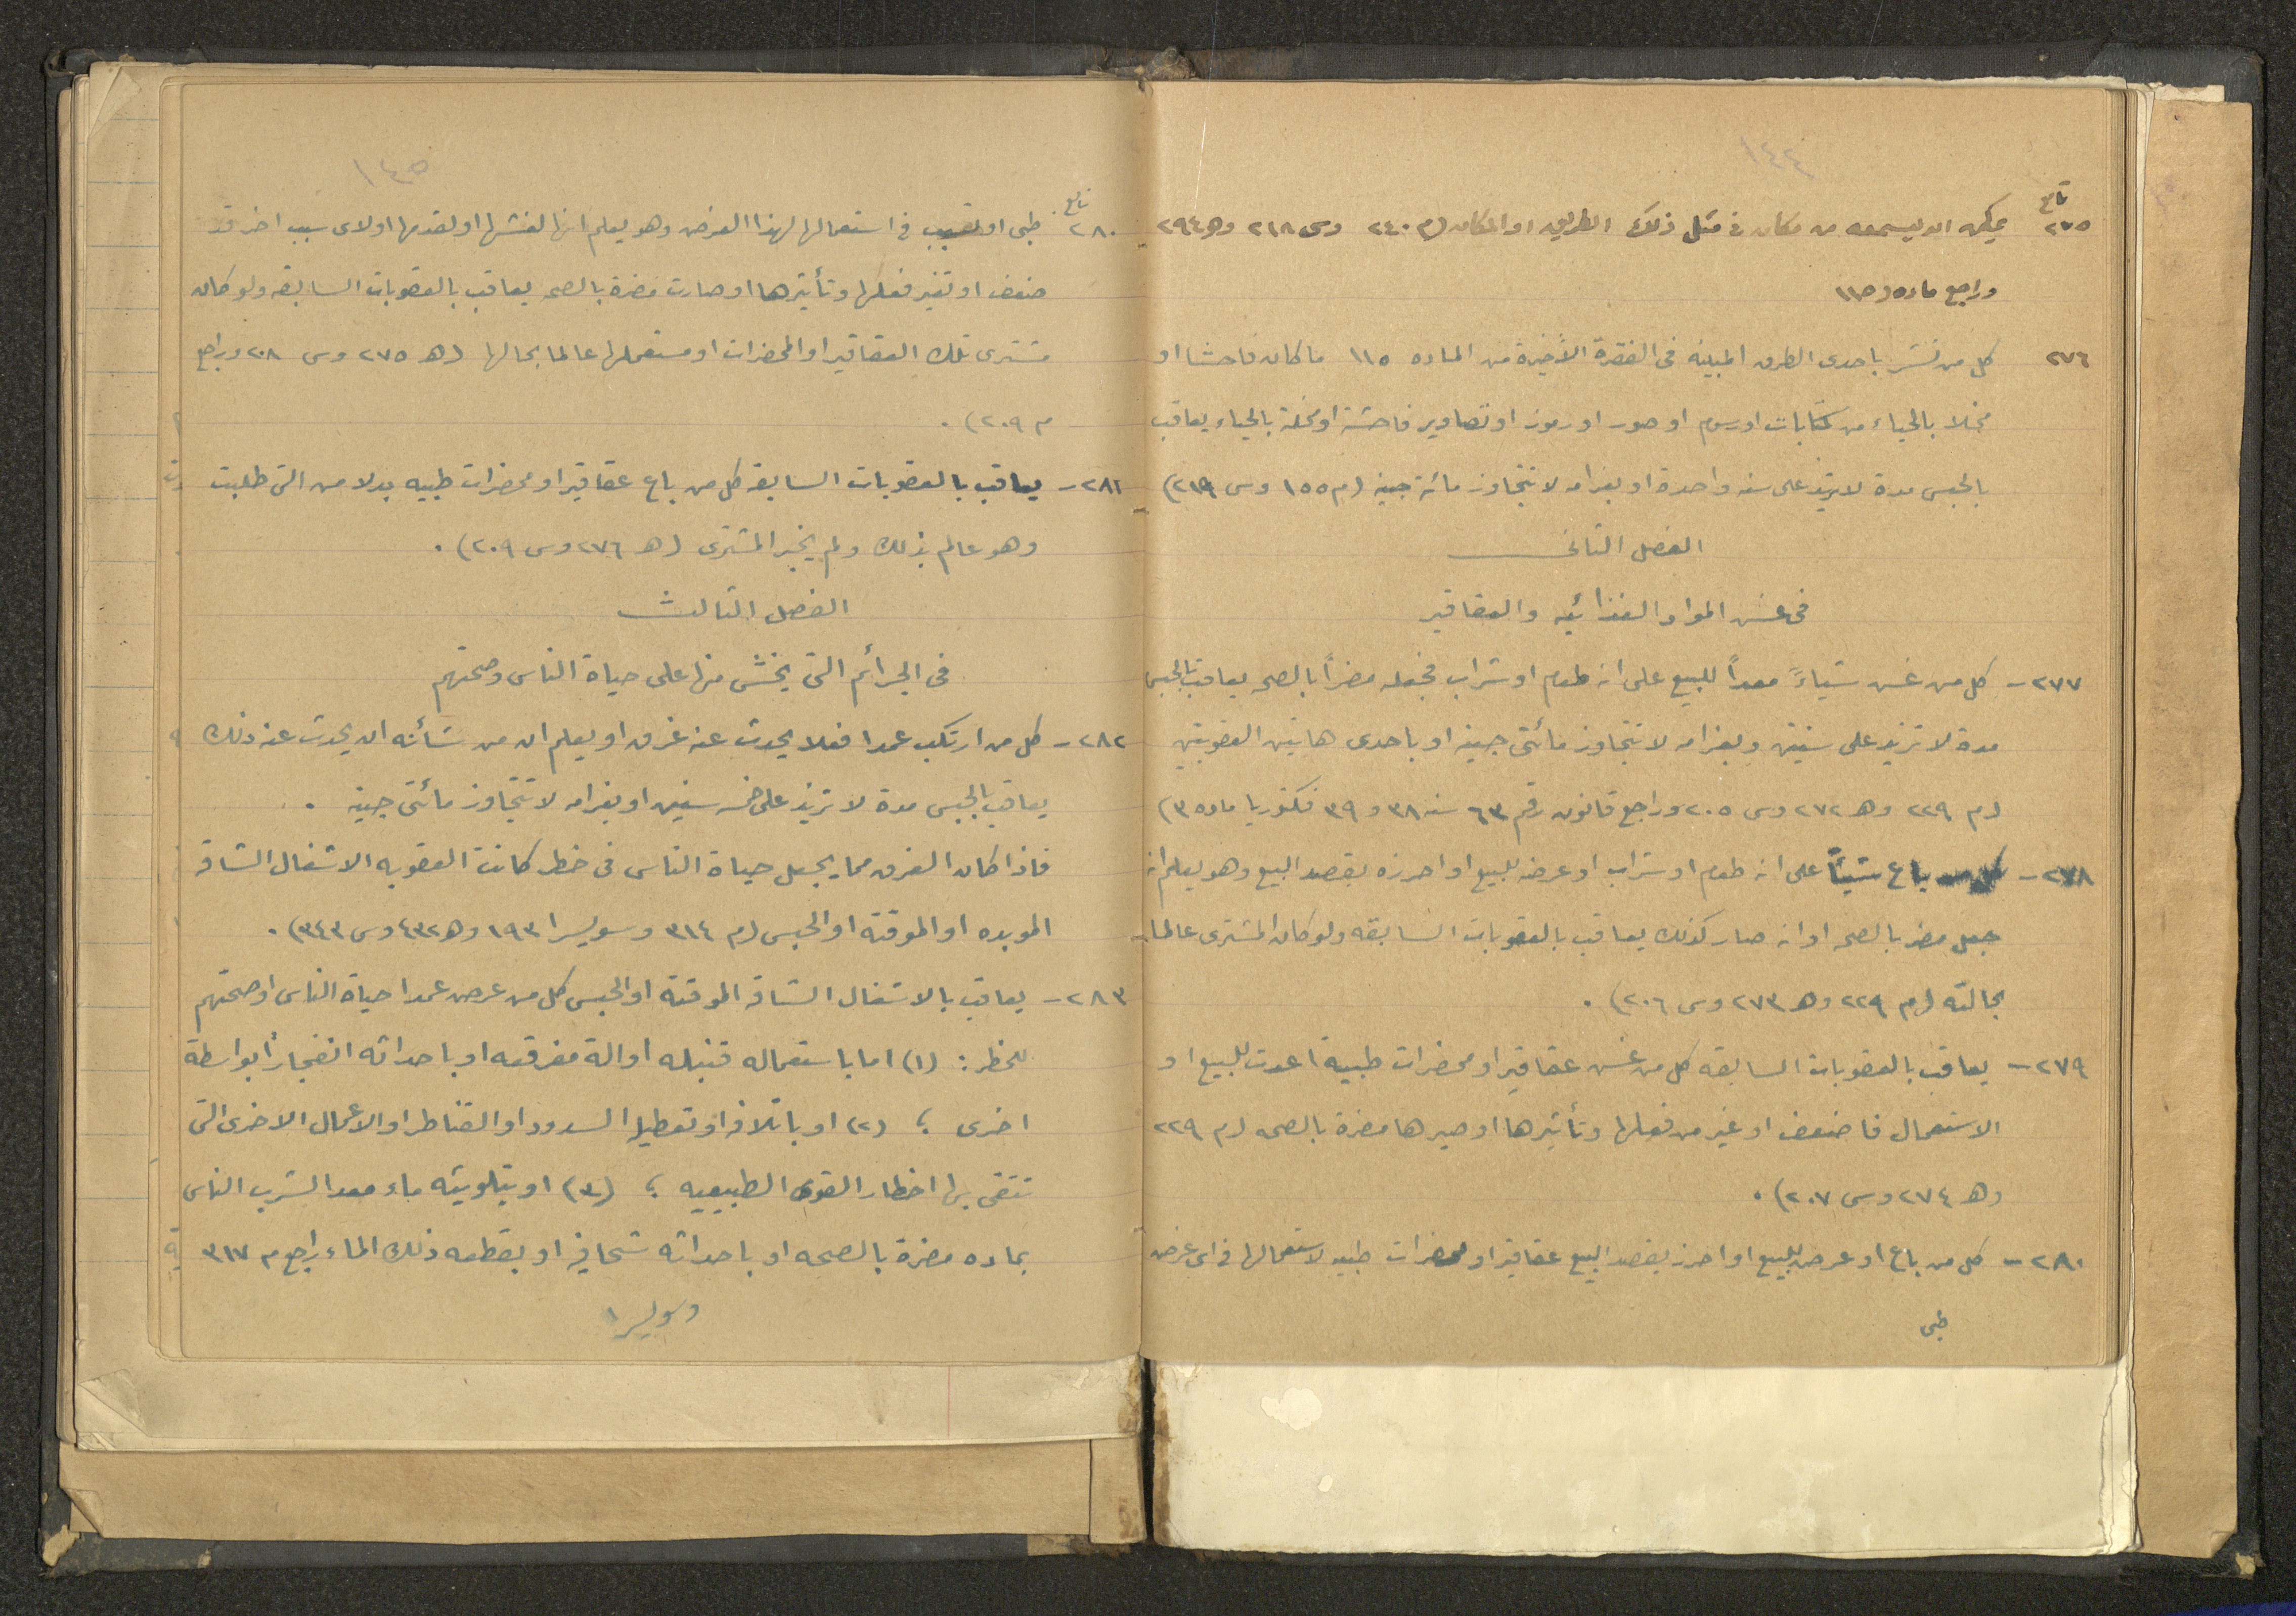 ١٤٤
تابع
٢٧٥ يمكن ان يسمعه من مكان فى مثل ذلك الطريق او المكان (م ٢٤٠ وس ٢١٨ وهـ ٢٩٤
وراجع ماده ١١٥)
٢٧٦ كل من نشر باحدى الطرق المبينه فى الفقرة الأخيرة من الماده ١١٥ ما كان فاحشا او
مخلا بالحياء من كتابات او رسوم او صور او رموز او تصاوير فاحشة او مخلة بالحياء يعاقب
بالحبس مدة لا تزيد على سنه واحدة او بغرامه لا تتجاوز مائة جنيه (م ١٥٥ وس ٢١٩)
الفصل الثانى
فى غش المواد الغذائيه والعقاقير
٢٧٧ – كل من غش شيئاً معداً للبيع على انه طعام او شراب فجعله مضراً بالصحه يعاقب بالحبس
مدة لا تزيد على سنتين وبغرامه لا تتجاوز مائتى جنيه او باحدى هاتين العقوبتين
(م ٢٢٩ وهـ ٢٧٢ وس ٢٠٥ وراجع قانون رقم ٦٣ سنه ٣٨ و ٣٩ فكتوريا ماده ٣)
٢٧٨ – كل من باع شيئاً على انه طعام او شراب او عرضه للبيع او احرزه بقصد البيع وهو يعلم انه
جعل مضر بالصحه او انه صار كذلك يعاقب بالعقوبات السابقه ولو كان المشترى عالما
بحالته (م ٢٢٩ وهـ ٢٧٣ وس ٢٠٦) .
٢٧٩ – يعاقب بالعقوبات السابقه كل من غش عقاقير او محضرات طبية اعدت للبيع او
الاستعمال فاضعف او غير من فعلها وتأثيرها او صيرها مضرة بالصحه (م ٢٢٩
وهـ ٢٧٤ وس ٢٠٧) .
٢٨٠ – كل من باع او عرض للبيع او احرز بقصد البيع عقاقير او محضرات طبيه لاستعمالها فى اى غرض
طبى
١٤٥
تابع
٢٨٠ طبى او تسبب فى استعمالها لهذا الغرض وهو يعلم انها لغشها او لقدمها او لاى سبب اخر قد
ضعف او تغير فعلها وتأثيرها او صارت مضرة بالصحه يعاقب بالعقوبات السابقه ولو كان
مشترى تلك العقاقير او المحضرات او مستعملها عالما بحالها (هـ ٢٧٥ وس ٢٠٨ وراجع
م ٢٠٩) .
٢٨١ – يعاقب بالعقوبات السابقه كل من باع عقاقير او محضرات طبيه بدلا من التى طلبت
وهو عالم بذلك ولم يخبر المشترى (هـ ٢٧٦ وس ٢٠٩) .
الفصل الثالث
فى الجرائم التى يخشى منها على حياة الناس وصحتهم
٢٨٢ – كل من ارتكب عمدا فعلا يحدث عنه غرق او يعلم ان من شأنه ان يحدث عنه ذلك
يعاقب بالحبس مدة لا تزيد على خمسه سنين او بغرامه لا تتجاوز مائتى جنيه .
فاذا كان الغرق مما يجعل حياة الناس فى خطر كانت العقوبه الاشغال الشاقه
الموبده او الموقتة او الحبس (م ٣١٤ وسويسرا ١٩٣ وهـ ٤٣٢ وس ٣٤٣) .
٢٨٣ – يعاقب بالاشغال الشاقه الموقتة او الحبس كل من عرض عمدا حياة الناس او صحتهم
للخطر : (١) اما باستعماله قنبله او الة مفرقعه او باحداثه انفجاراً بواسطة
اخرى ؛ (٢) او باتلافه او تعطيله السدود او القناطر او الاعمال الاخرى التى
تتقى بها اخطار القوى الطبيعيه ؛ (٣) او بتلويثه ماء معدا لشرب الناس
بماده مضرة بالصحه او باحداثه شحا فيه او بقطعه ذلك الماء راجع م ٣١٧
وسويسرا